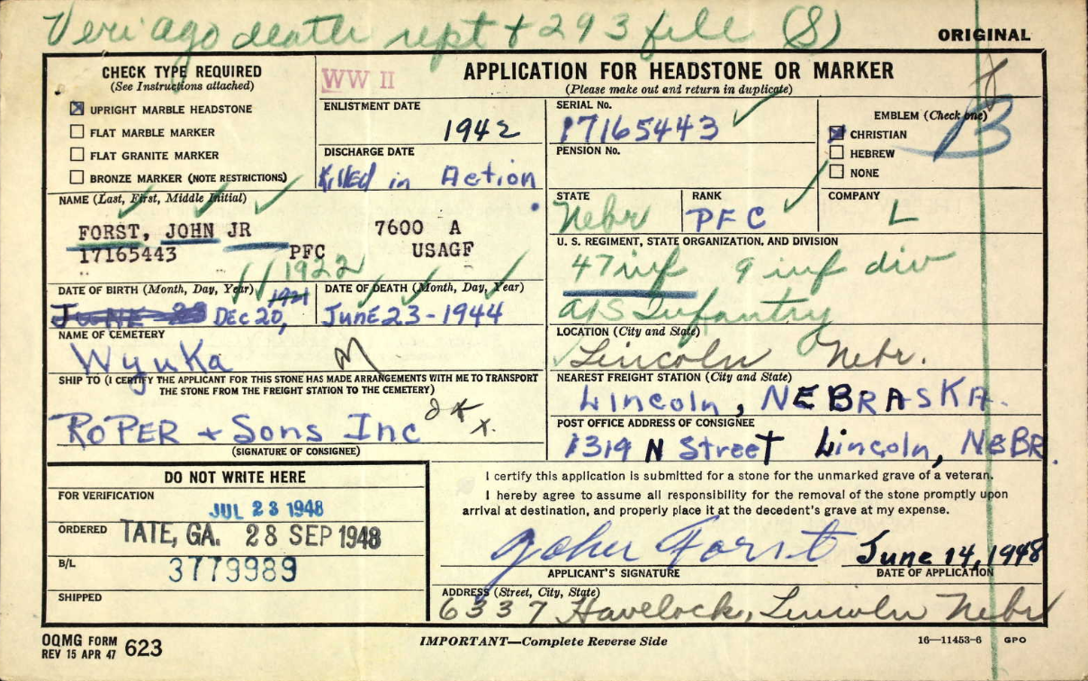 Veri ago death rept + 293 file (S)
ORIGINAL
CHECK TYPE REQUIRED
(See Instructions attached)
UPRIGHT MARBLE HEADSTONE
FLAT MARBLE MARKER
FLAT GRANITE MARKER
BRONZE MARKER (NOTE RESTRICTIONS)
WW II
ENLISTMENT DATE
1942
DISCHARGE DATE
Killed in Action
APPLICATION FOR HEADSTONE OR MARKER
(Please make out and return in duplicate)
SERIAL No.
17165443
PENSION No.
EMBLEM (Check one)
CHRISTIAN
HEBREW
NONE
B
NAME (Last, First, Middle Initial)
FORST, JOHN JR 7600 A
17165443 PFC USAGF
STATE
Nebr
RANK
PFC
COMPANY
L
U. S. REGIMENT, STATE ORGANIZATION, AND DIVISION
47 inf 9 inf div
Infantry
1922
DATE OF BIRTH (Month, Day, Year)
1921
JUNE 23 DEC 20,
DATE OF DEATH (Month, Day, Year)
JUNE 23-1944
NAME OF CEMETERY
Wyuka
LOCATION (City and State)
Lincoln Nebr.
SHIP TO (I CERTIFY THE APPLICANT FOR THIS STONE HAS MADE ARRANGEMENTS WITH ME TO TRANSPORT
THE STONE FROM THE FREIGHT STATION TO THE CEMETERY)
ROPER + Sons Inc
(SIGNATURE OF CONSIGNEE)
NEAREST FREIGHT STATION (City and State)
Lincoln, NEBRASKA.
POST OFFICE ADDRESS OF CONSIGNEE
1319 N Street Lincoln, NEBR.
DO NOT WRITE HERE
FOR VERIFICATION
JUL 23 1948
ORDERED TATE, GA. 28 SEP 1948
B/L
3779989
SHIPPED
I certify this application is submitted for a stone for the unmarked grave of a veteran.
I hereby agree to assume all responsibility for the removal of the stone promptly upon
arrival at destination, and properly place it at the decedent's grave at my expense.
John Forst June 14, 1948
APPLICANT'S SIGNATURE DATE OF APPLICATION
ADDRESS (Street, City, State)
6337 Havelock, Lincoln Nebr
OQMG FORM 623
REV 15 APR 47
IMPORTANT—Complete Reverse Side
16—11453-6 GPO